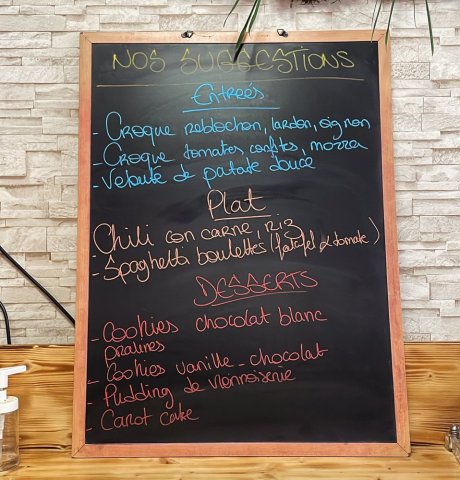 NOS SUGGESTIONS
Entreés
- Croque reblochon, lardon, oignon
- Croque tomates confites, mozza
- Velouté de patate douce
Plat
- Chili con carne, riz
- Spaghetti boulettes (falafel ou tomate)
DESSERTS
- Cookies chocolat blanc
pralines
- Cookies vanille - chocolat
- Pudding de viennoiserie
- Carot cake